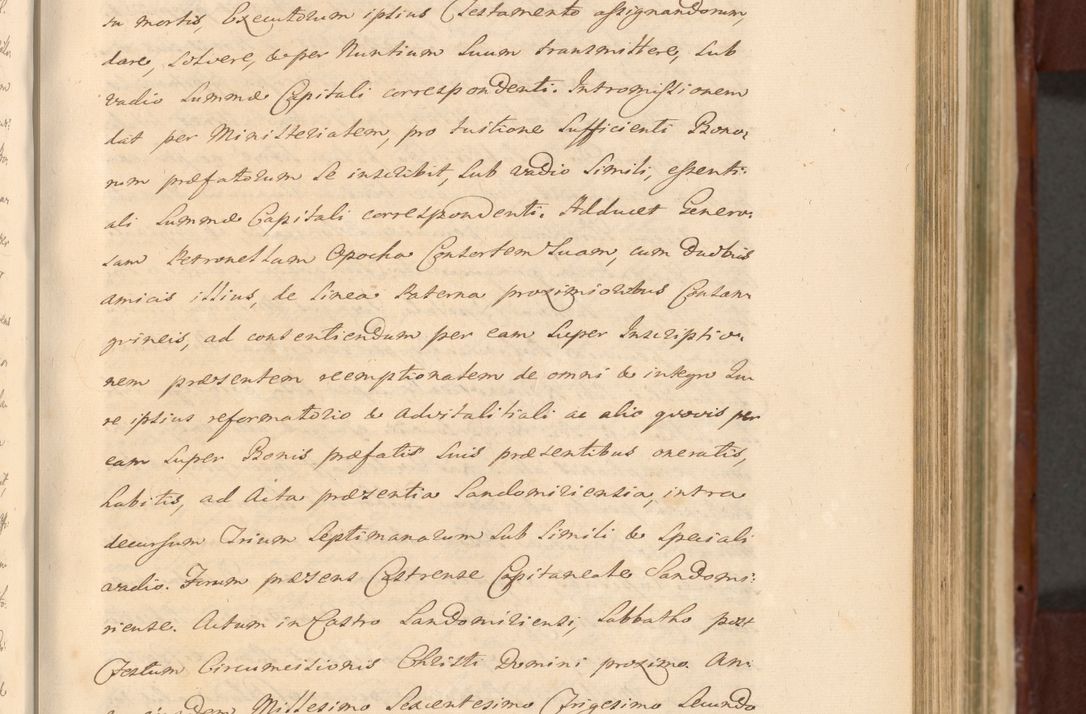 su mortis, Executorum ipsius Testamento assignandorum,
dare, solvere, & per Nuntium Suum transmittere, sub
vadio Summæ Capitali correspondenti. Intromissionem
dat per Ministerialem, pro tuitione sufficienti Bono:
rum præfatorum se inscribit, sub vadio simili, essenti:
ali summæ Capitali correspondenti. Adducet Genero:
sam Petronellam Opocka Consortem Suam, cum duobus
amicis illius, de linea Paterna proximioribus Consan:
guineis, ad consentiendum per eam super Inscriptio:
nem præsentem reemptionalem de omni & integro Ju:
re ipsius reformatorio & advitalitiali ac alio quovis per
eam super Bonis præfatis suis præsentibus oneratis,
habitis, ad Acta præsentia Sandomiriensia, intra
decursum Trium Septimanarum sub simili & speciali
vadio. Forum præsens Castrense Capitaneale Sandomi:
riense. Actum in Castro Sandomiriensi, Sabbatho post
Festum Circumcisionis Christi Domini proximo An:
Millesimo Sexcentesimo Trigesimo Secundo